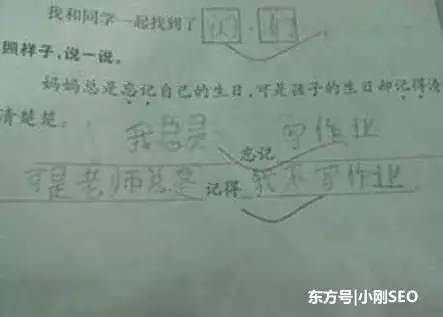 我和同学一起找到了
照样子,说一说。
妈妈总是忘记自己的生日,可是孩子的生日却记得清
清楚楚。
我总是忘记写作业
可是老师总是记得我不写作业
东方号|小刚SEO